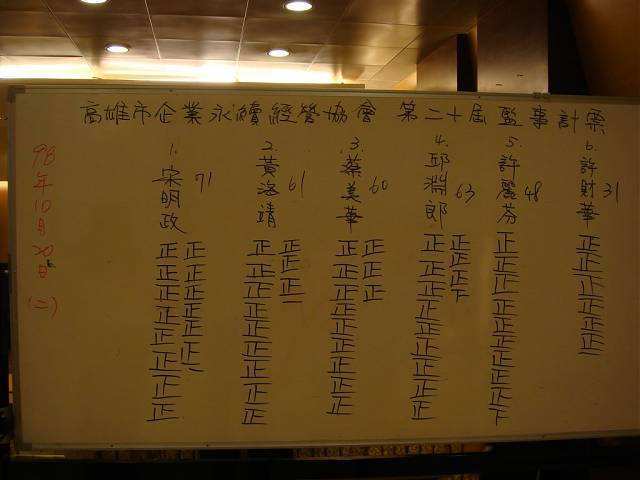 高雄市企業永續經營協會 第二十屆監事計票
98年10月20日(二)
1. 宋明政 71
正正正正正正正正
正正正正正正一
2. 黃海靖 61
正正正正正正正正正
正正正一
3. 蔡美華 60
正正正正正正正正正
正正正
4. 邱淵郎 63
正正正正正正正正正
正正正下
5. 許麗芬 48
正正正正正正正正正下
6. 許財華 31
正正正正正正一